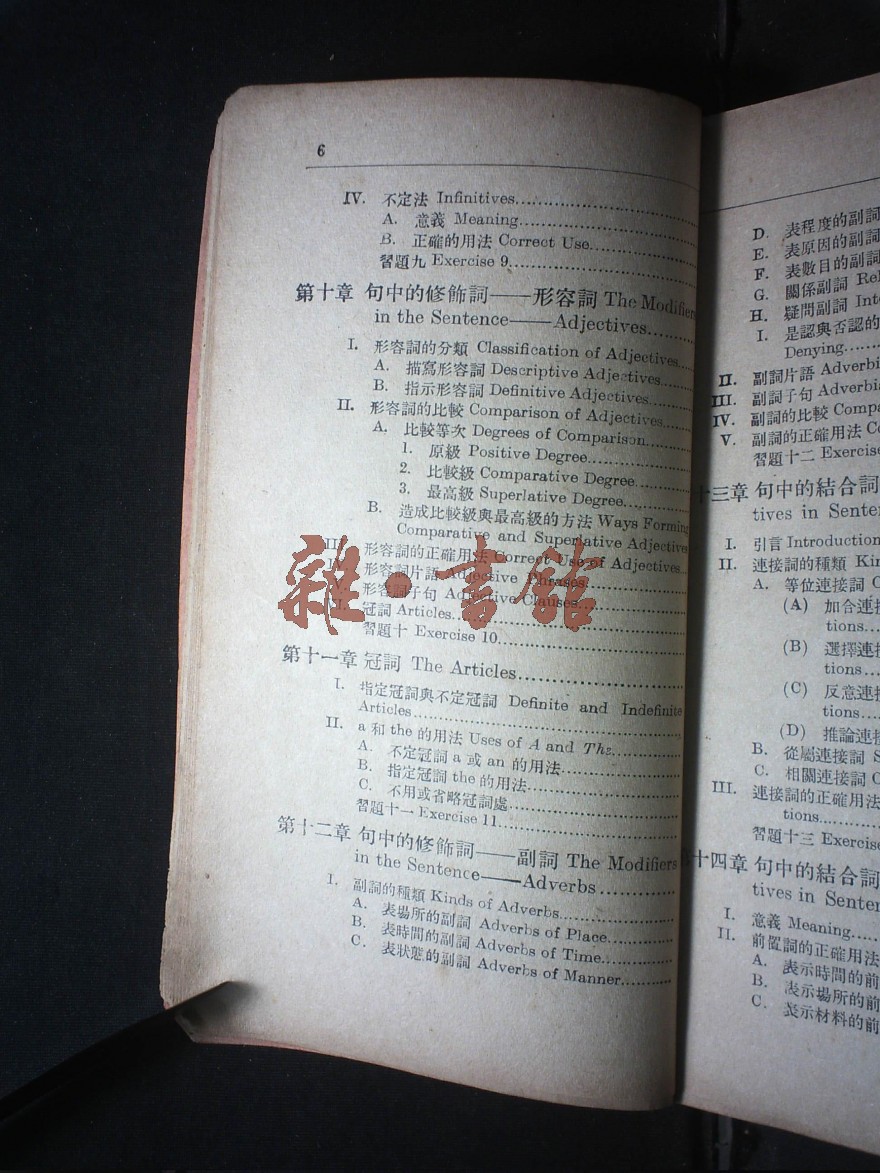 6
IV. 不定法 Infinitives
A. 意義 Meaning
B. 正確的用法 Correct Use
習題九 Exercise 9
第十章 句中的修飾詞——形容詞 The Modifiers
in the Sentence——Adjectives
I. 形容詞的分類 Classification of Adjectives
A. 描寫形容詞 Descriptive Adjectives
B. 指示形容詞 Definitive Adjectives
II. 形容詞的比較 Comparison of Adjectives
A. 比較等次 Degrees of Comparison
1. 原級 Positive Degree
2. 比較級 Comparative Degree
3. 最高級 Superlative Degree
B. 造成比較級與最高級的方法 Ways Forming
Comparative and Superlative Adjectives
形容詞的正確用法 Correct Use of Adjectives
形容詞片語 Adjective Phrases
形容詞子句 Adjective Clauses
冠詞 Articles
習題十 Exercise 10
雜·書館
第十一章 冠詞 The Articles
I. 指定冠詞與不定冠詞 Definite and Indefinite
Articles
II. a 和 the 的用法 Uses of A and The
A. 不定冠詞 a 或 an 的用法
B. 指定冠詞 the 的用法
C. 不用或省略冠詞處
習題十一 Exercise 11
第十二章 句中的修飾詞——副詞 The Modifiers
in the Sentence——Adverbs
I. 副詞的種類 Kinds of Adverbs
A. 表場所的副詞 Adverbs of Place
B. 表時間的副詞 Adverbs of Time
C. 表狀態的副詞 Adverbs of Manner
D. 表程度的副詞
E. 表原因的副詞
F. 表數目的副詞
G. 關係副詞 Rel
H. 疑問副詞 Inte
I. 是認與否認的
Denying
II. 副詞片語 Adverbi
III. 副詞子句 Adverbia
IV. 副詞的比較 Compa
V. 副詞的正確用法 Co
習題十二 Exercise
十三章 句中的結合詞
tives in Senten
I. 引言 Introduction
II. 連接詞的種類 Kin
A. 等位連接詞 C
(A) 加合連接
tions
(B) 選擇連接
tions
(C) 反意連接
tions
(D) 推論連接
B. 從屬連接詞 S
C. 相關連接詞 C
III. 連接詞的正確用法
tions
習題十三 Exercise
十四章 句中的結合詞
tives in Senten
I. 意義 Meaning
II. 前置詞的正確用法
A. 表示時間的前
B. 表示場所的前
C. 表示材料的前